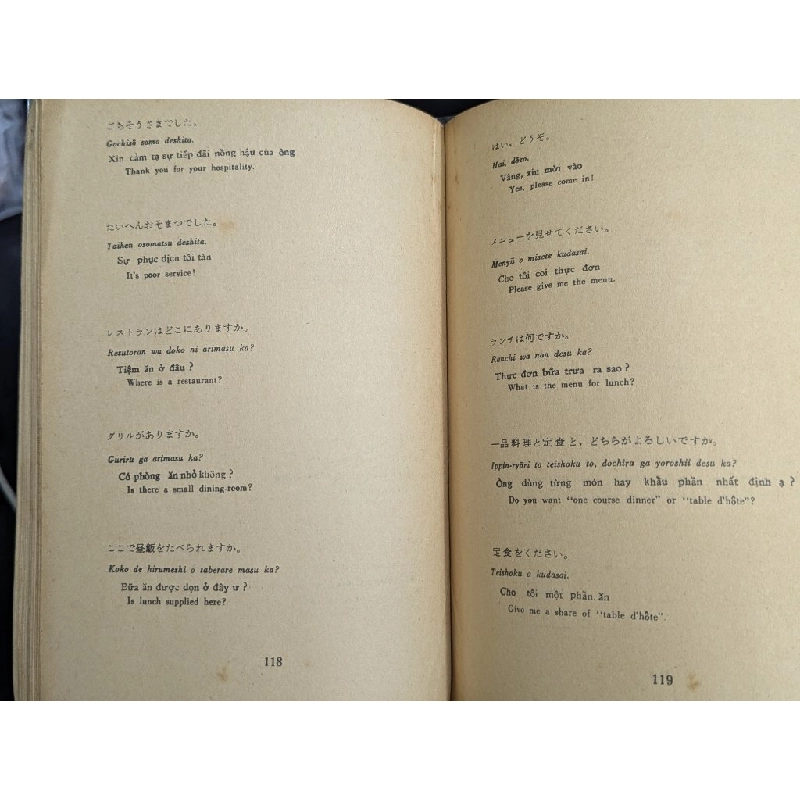 ごちそうさまでした。
Gochisō sama deshita.
Xin cảm tạ sự tiếp đãi nồng hậu của ông
Thank you for your hospitality.
たいへんおそまつでした。
Taihen osomatsu deshita.
Sự phục dịch tồi tàn
It's poor service!
レストランはどこにありますか。
Resutoran wa doko ni arimasu ka?
Tiệm ăn ở đâu?
Where is a restaurant?
グリルがありますか。
Guriru ga arimasu ka?
Có phòng ăn nhỏ không?
Is there a small dining-room?
ここで昼飯をたべられますか。
Koko de hirumeshi o taberare masu ka?
Bữa ăn được dọn ở đây ư?
Is lunch supplied here?
118
はい、どうぞ。
Hai, dōzo.
Vâng, xin mời vào
Yes, please come in!
メニューを見せてください。
Menyū o misete kudasai.
Cho tôi coi thực đơn
Please give me the menu.
ランチは何ですか。
Ranchi wa nan desu ka?
Thực đơn bữa trưa ra sao?
What is the menu for lunch?
一品料理と定食と、どちらがよろしいですか。
Ippin-ryōri to teishoku to, dochira ga yoroshii desu ka?
Ông dùng từng món hay khẩu phần nhất định ạ?
Do you want "one course dinner" or "table d'hôte"?
定食をください。
Teishoku o kudasai.
Cho tôi một phần ăn
Give me a share of "table d'hôte".
119